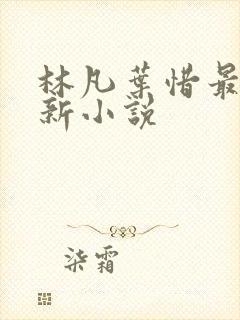 林凡葉惜最
新小説
柒霜